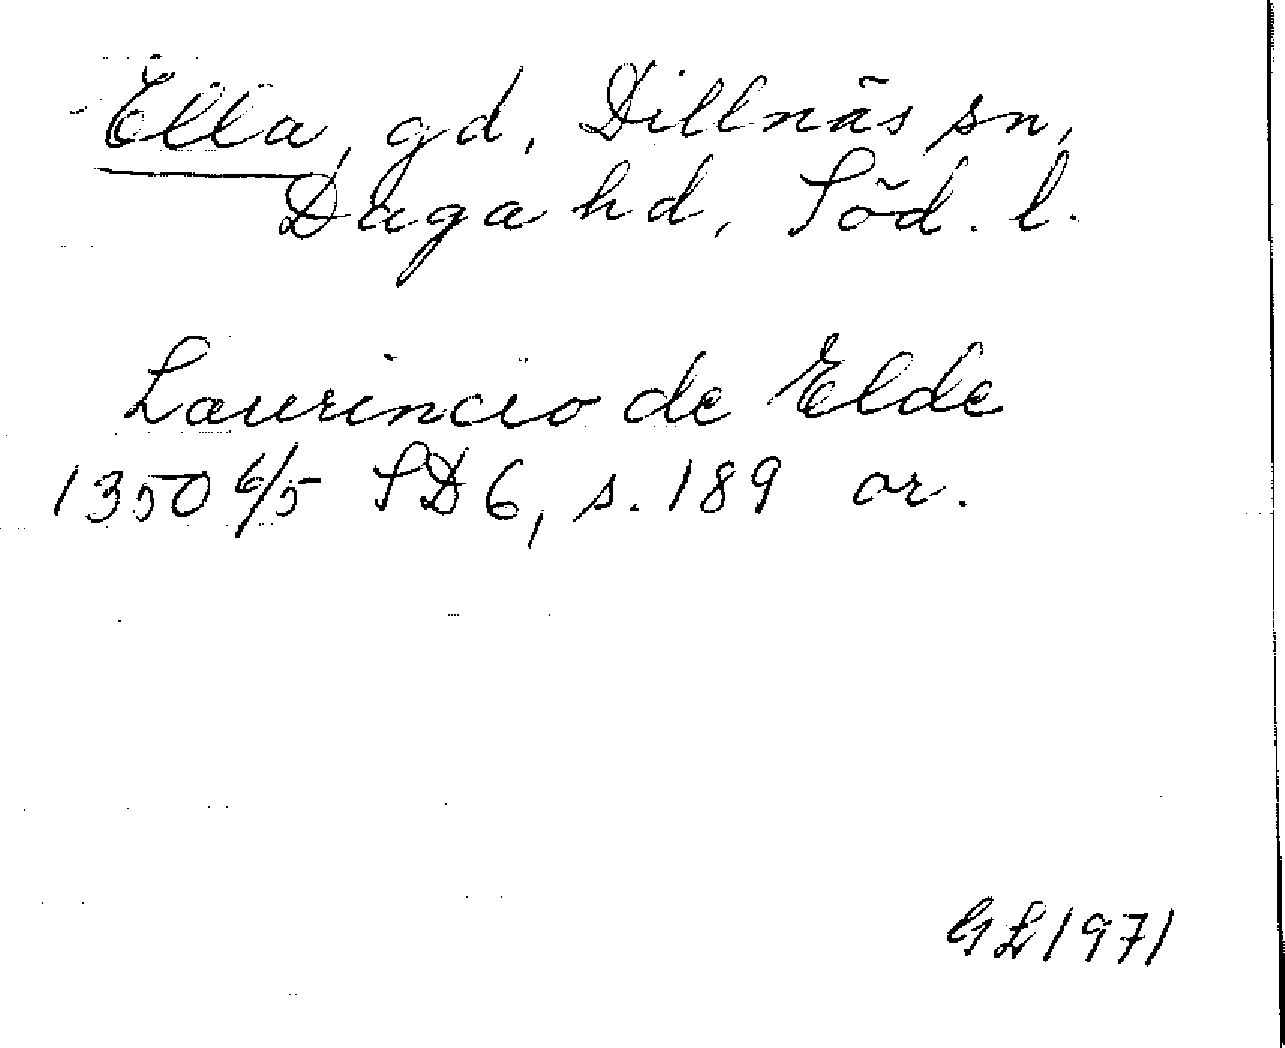 Ella, gd, Dillnäs sn,
Daga hd, Söd. l.
Laurincio de Elde
1350 6/5 SD 6, s. 189 or.
GL 1971